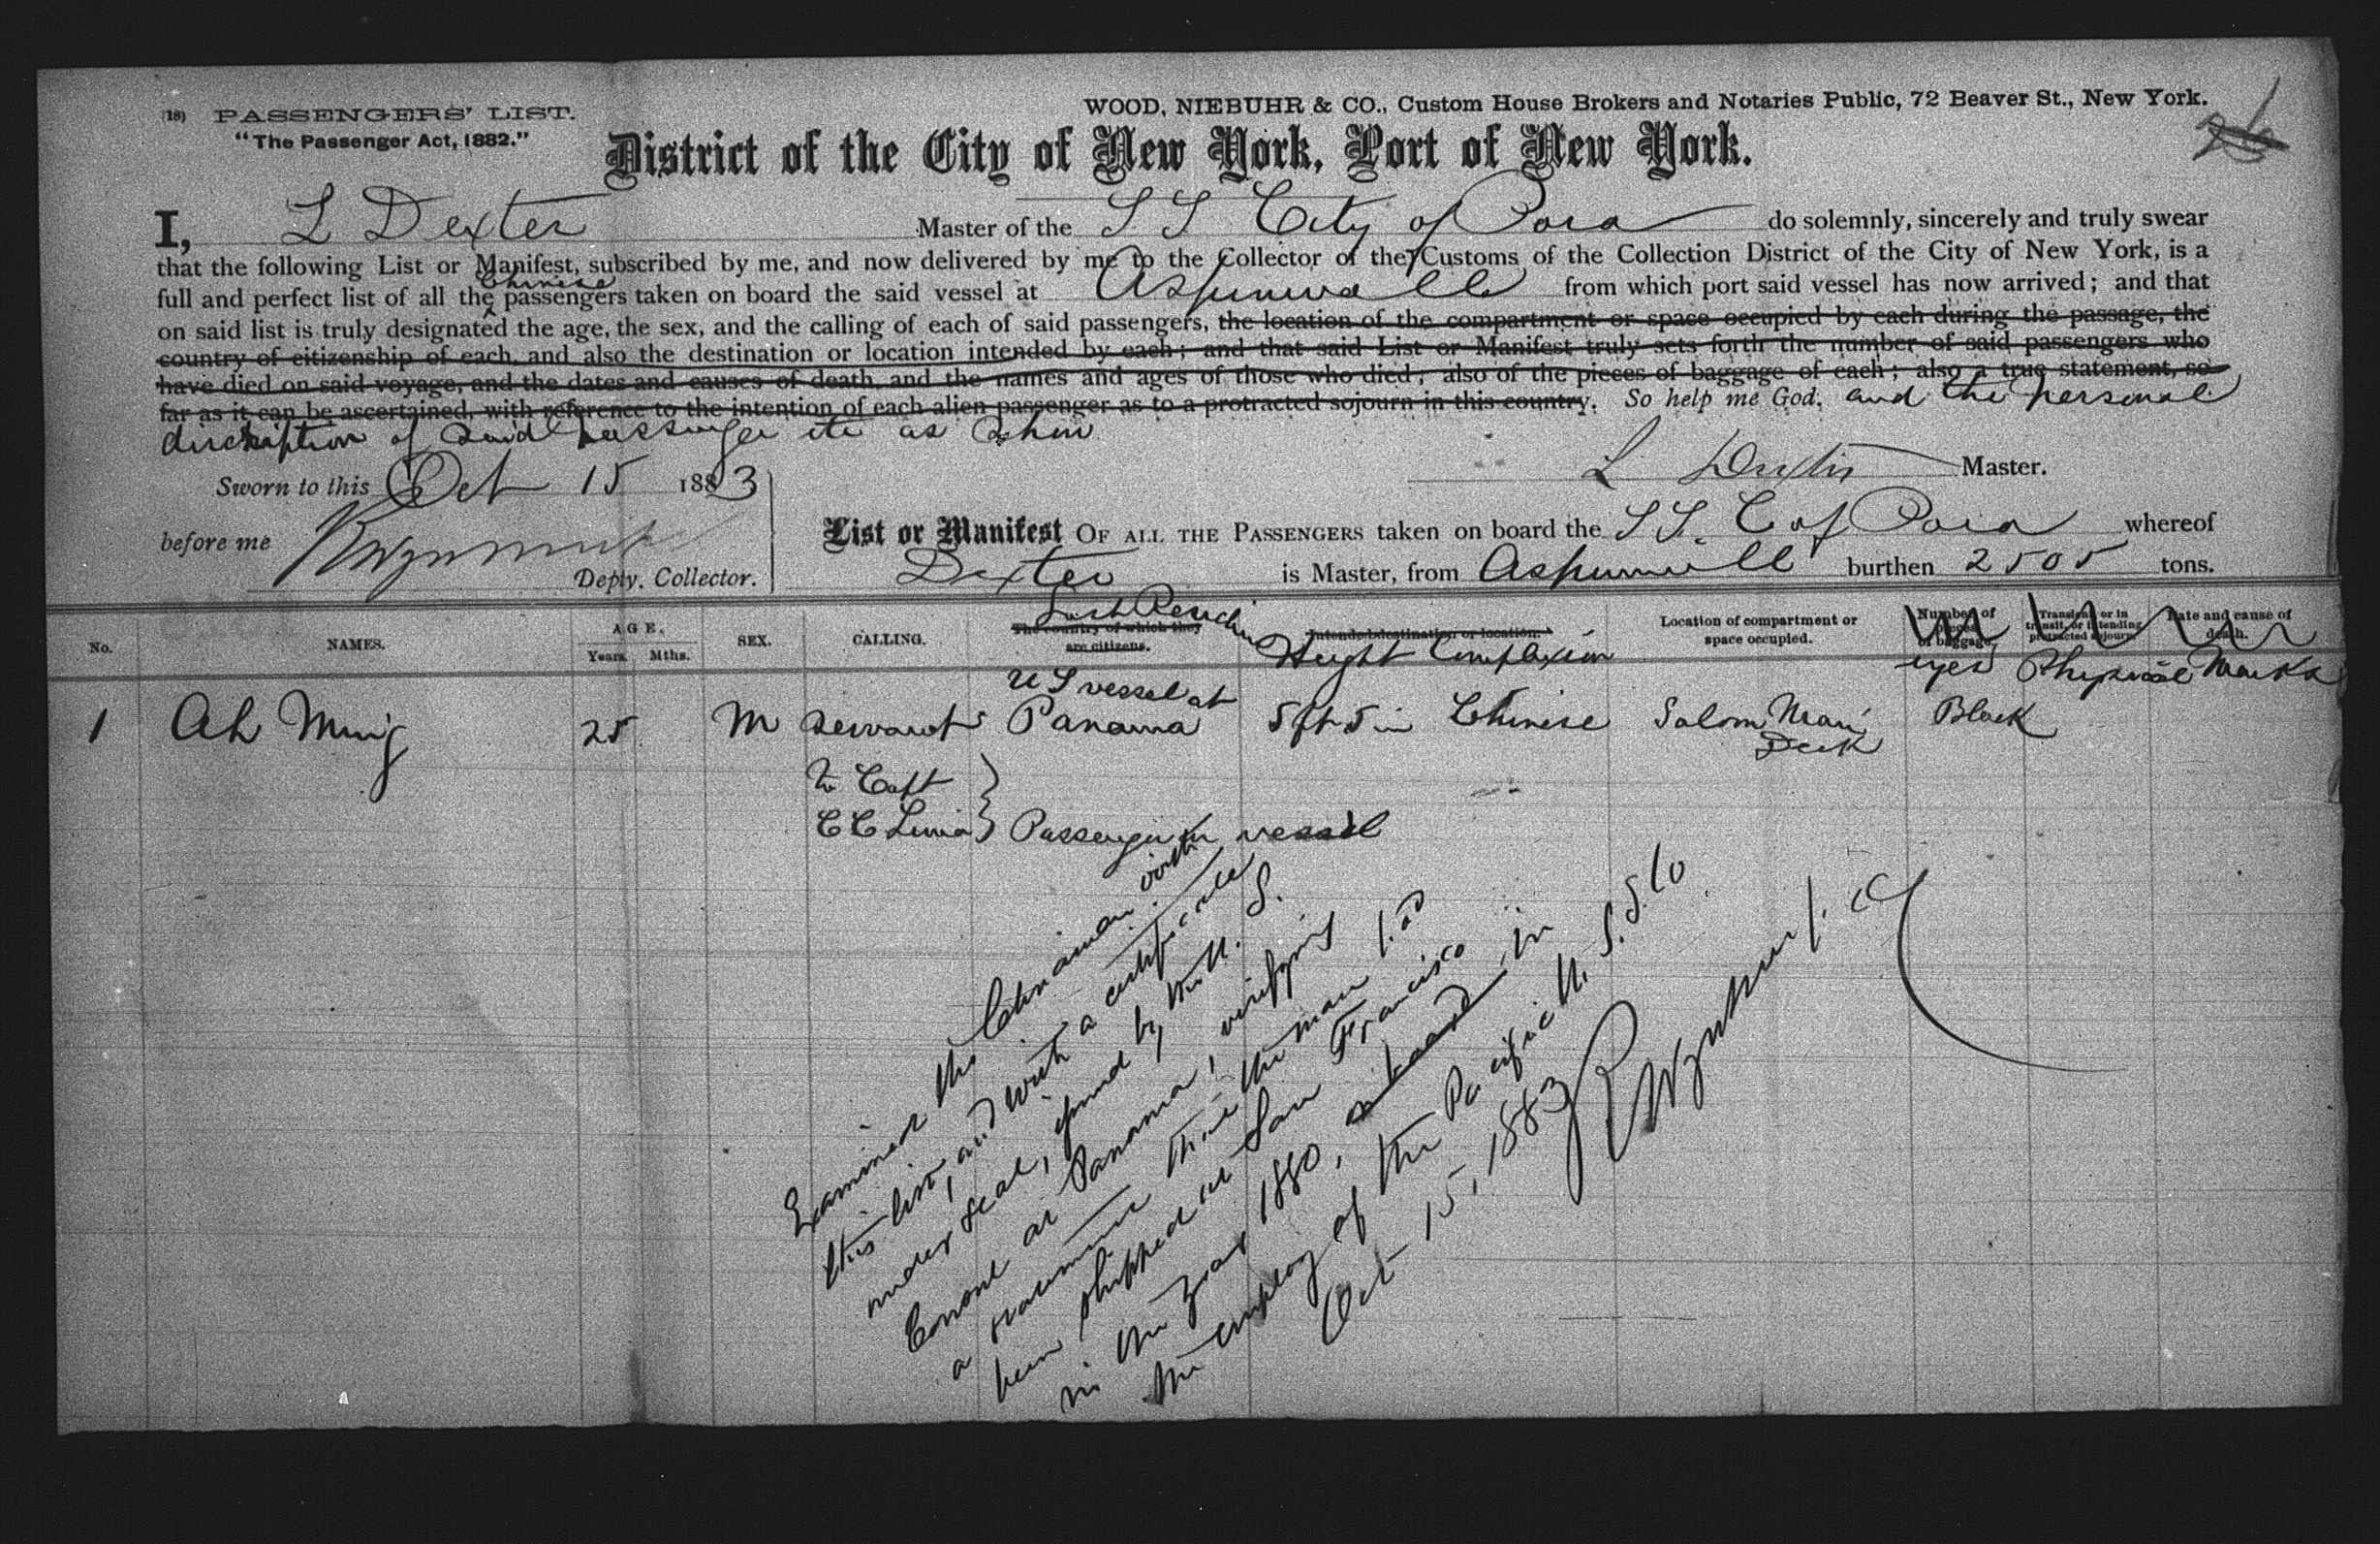 (18) PASSENGERS' LIST.
"The Passenger Act, 1882."
WOOD, NIEBUHR & CO., Custom House Brokers and Notaries Public, 72 Beaver St., New York.
26
District of the City of New York, Port of New York.
I, L Dexter Master of the S S City of Para do solemnly, sincerely and truly swear
that the following List or Manifest, subscribed by me, and now delivered by me to the Collector of the Customs of the Collection District of the City of New York, is a
full and perfect list of all the Chinese passengers taken on board the said vessel at Aspinwall from which port said vessel has now arrived; and that
on said list is truly designated the age, the sex, and the calling of each of said passengers, the location of the compartment or space occupied by each during the passage, the
country of citizenship of each, and also the destination or location intended by each; and that said List or Manifest truly sets forth the number of said passengers who
have died on said voyage, and the dates and causes of death, and the names and ages of those who died; also of the pieces of baggage of each; also a true statement, so
far as it can be ascertained, with reference to the intention of each alien passenger as to a protracted sojourn in this country. So help me God. and the personal
discription of said passenger etc as
L Dexter Master.
Sworn to this Oct 15 1883
before me
Depty. Collector.
List or Manifest OF ALL THE PASSENGERS taken on board the S S. C of Para whereof
Dexter is Master, from Aspinwall burthen 2505 tons.
No. NAMES. AGE. Years. Mths. SEX. CALLING. The country of which they are citizens. Intended destination or location. Location of compartment or space occupied. Number of pieces of baggage. Transient or in transit, or intending protracted sojourn. Date and cause of death.
Last Residence Height Complexion eyes Physical Marks
1 Ah Ming 25 M servant US vessel at Panama 5 ft 5 in Chinese Saloon Main Deck Black
to Capt
C C Passenger in vessel
Examined the Chinaman with
this list, and with a certificate
under seal, issued by the U. S.
Consul at Panama, verifying
a statement that the man had
been shipped at San Francisco
in the year 1880, on board in
the employ of the Pacific M. S. S. Co
Oct 15, 1883